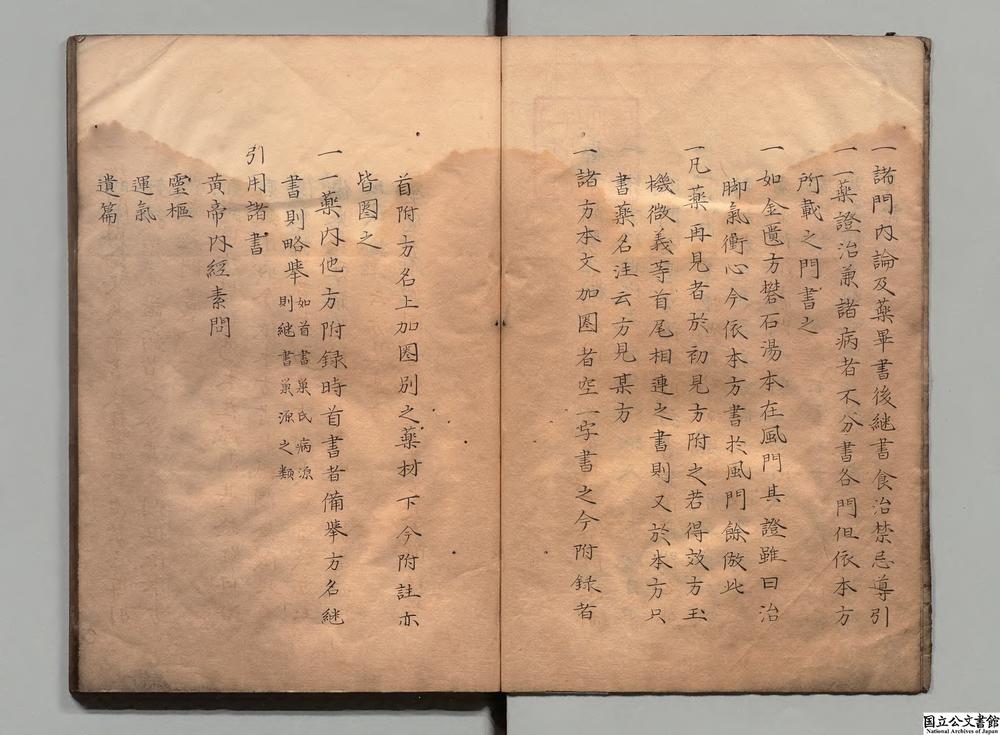 一諸門内論及藥畢書後継書食治禁忌導引
一一藥證治兼諸病者不分書各門但依本方
所載之門書之
一如金匱方礬石湯本在風門其證雖曰治
脚氣衝心今依本方書於風門餘倣此
一凡藥再見者於初見方附之若得效方玉
機微義等首尾相連之書則又於本方只
書藥名注云方見某方
一諸方本文加圏者空一字書之今附録者
首附方名上加圏別之藥材下今附註亦
皆圏之
一一藥内他方附録時首書者備舉方名継
書則略舉如首書巣氏病源
則継書巣源之類
引用諸書
黄帝内經素問
霊樞
運氣
遺篇
国立公文書館
National Archives of Japan